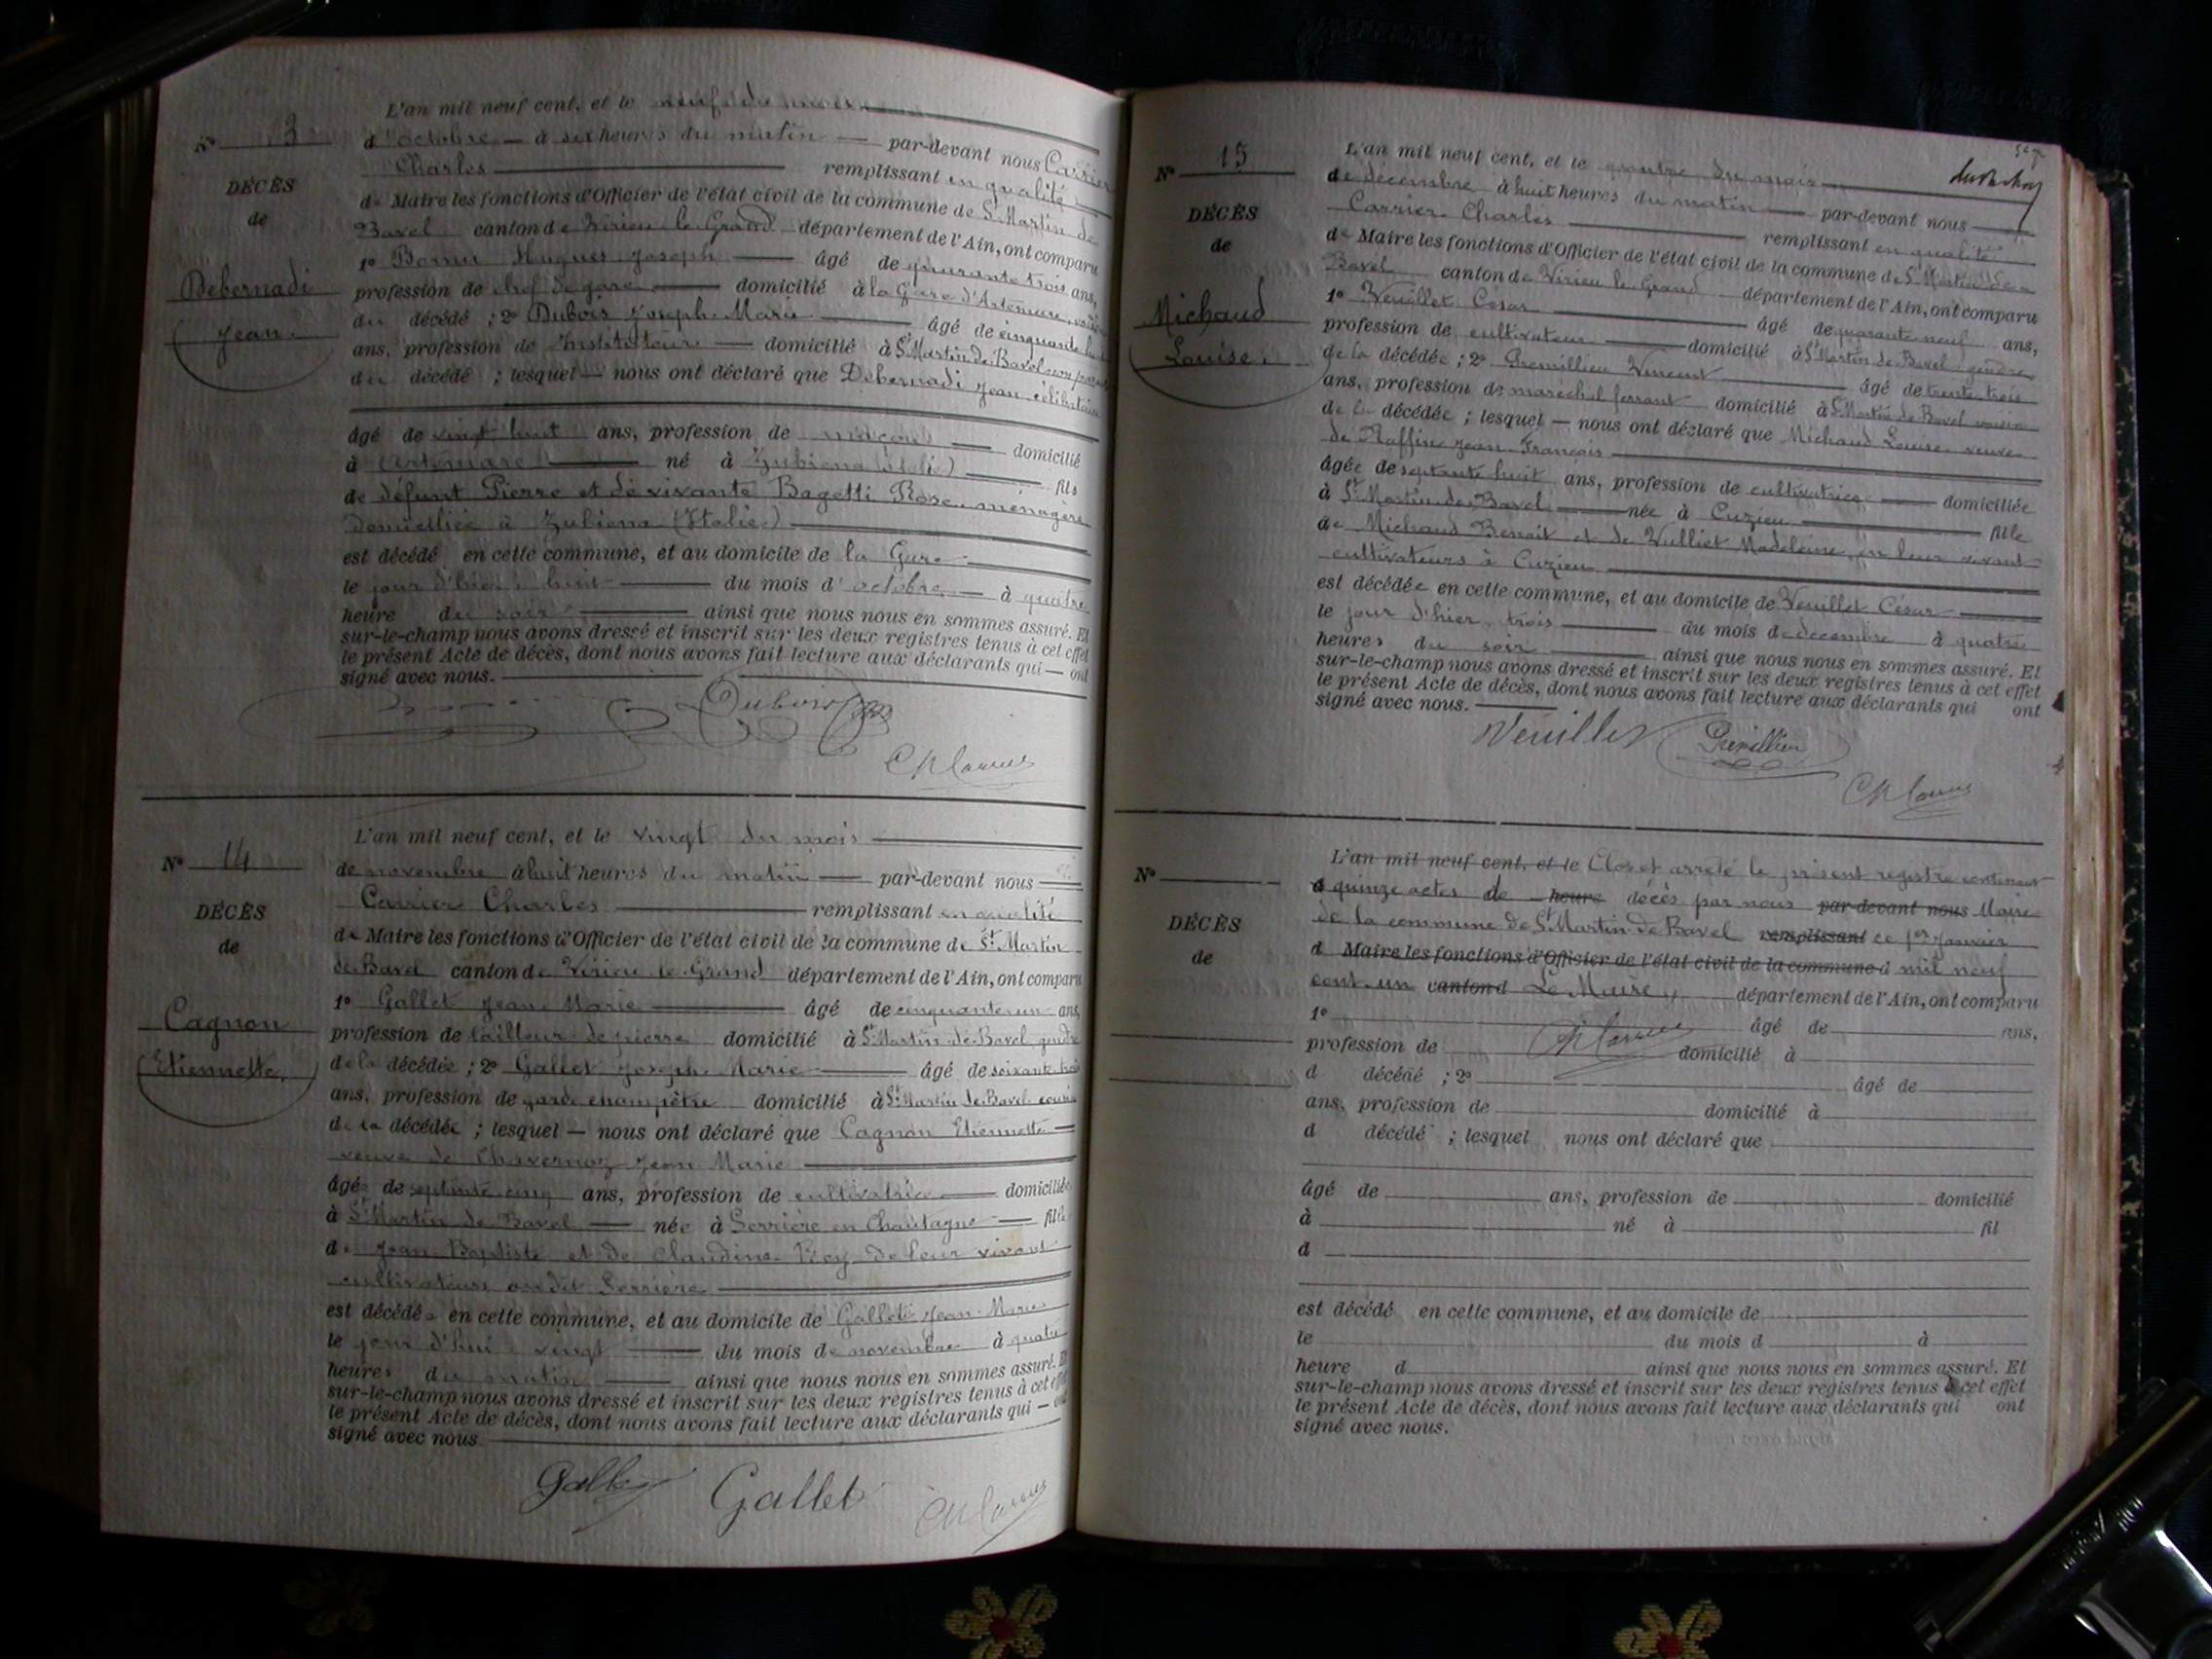 L'an mil neuf cent, et le neuf du mois
N° 13
d'octobre à six heures du matin par-devant nous Carrier
Charles remplissant en qualité
DÉCÈS
de Maire les fonctions d'Officier de l'état civil de la commune de St Martin de
de
Bavel canton de Virieu le Grand département de l'Ain, ont comparu
1° Hugues Joseph âgé de quarante trois ans,
Debernadi
profession de chef de gare domicilié à la Gare d'Artemare,
Jean
du décédé ; 2° Dubois Joseph Marie âgé de cinquante
ans, profession de Instituteur domicilié à St Martin de Bavel
du décédé ; lesquel nous ont déclaré que Debernadi Jean célibataire
âgé de vingt huit ans, profession de maçon domicilié
à Artemare né à Zubiena (Italie) fils
de défunt Pierre et de vivante Bagetti Rose, ménagère
domiciliée à Zubiena (Italie)
est décédé en cette commune, et au domicile de la Gare
le jour d'hier huit du mois d'octobre à quatre
heure du soir ainsi que nous nous en sommes assuré. Et
sur-le-champ nous avons dressé et inscrit sur les deux registres tenus à cet effet
le présent Acte de décès, dont nous avons fait lecture aux déclarants qui ont
signé avec nous.
Dubois
L'an mil neuf cent, et le vingt du mois
N° 14
de novembre à huit heures du matin par-devant nous
Carrier Charles remplissant en qualité
DÉCÈS
de Maire les fonctions d'Officier de l'état civil de la commune de St Martin
de
de Bavel canton de Virieu le Grand département de l'Ain, ont comparu
1° Gallet Jean Marie âgé de cinquante un ans,
Cagnon
profession de tailleur de pierre domicilié à St Martin de Bavel gendre
Etiennette
de la décédée ; 2° Gallet Joseph Marie âgé de soixante trois
ans, profession de garde champêtre domicilié à St Martin de Bavel cousin
de la décédée ; lesquel nous ont déclaré que Cagnon Etiennette
veuve de Chavernoz Jean Marie
âgée de septante cinq ans, profession de cultivatrice domiciliée
à St Martin de Bavel née à Serrière en Chautagne fille
de Jean Baptiste et de Claudine Rey de leur vivant
cultivateurs au dit Serriere
est décédée en cette commune, et au domicile de Gallet Jean Marie
le jour d'hui vingt du mois de novembre à quatre
heures du matin ainsi que nous nous en sommes assuré. Et
sur-le-champ nous avons dressé et inscrit sur les deux registres tenus à cet effet
le présent Acte de décès, dont nous avons fait lecture aux déclarants qui ont
signé avec nous
Gallet Gallet
L'an mil neuf cent, et le quatre du mois
N° 15
de décembre à huit heures du matin par-devant nous
Carrier Charles remplissant en qualité
DÉCÈS
de Maire les fonctions d'Officier de l'état civil de la commune de St Martin de
de
Bavel canton de Virieu le Grand département de l'Ain, ont comparu
1° Veuillet César âgé de quarante neuf ans,
Michaud
profession de cultivateur domicilié à St Martin de Bavel gendre
Louise
de la décédée ; 2° Vincent âgé de trente trois
ans, profession de maréchal ferrant domicilié à St Martin de Bavel voisin
de la décédée ; lesquel nous ont déclaré que Michaud Louise veuve
de Raffin Jean François
âgée de septante huit ans, profession de cultivatrice domiciliée
à St Martin de Bavel née à Cuzieu fille
de Michaud Benoit et de Vulliet Madeleine en leur vivant
cultivateurs à Cuzieu
est décédée en cette commune, et au domicile de Veuillet César
le jour d'hier trois du mois de décembre à quatre
heures du soir ainsi que nous nous en sommes assuré. Et
sur-le-champ nous avons dressé et inscrit sur les deux registres tenus à cet effet
le présent Acte de décès, dont nous avons fait lecture aux déclarants qui ont
signé avec nous.
Veuillet
L'an mil neuf cent, et le Clos et arrêté le présent registre contenant
N°
à quinze actes de heure décès par nous par-devant nous Maire
de la commune de St Martin de Bavel remplissant ce 1er Janvier
DÉCÈS
d Maire les fonctions d'Officier de l'état civil de la commune d mil neuf
de
cent un canton d Le Maire, département de l'Ain, ont comparu
1° âgé de ans,
profession de domicilié à
d décédé ; 2° âgé de
ans, profession de domicilié à
d décédé ; lesquel nous ont déclaré que
âgé de ans, profession de domicilié
à né à fil
d
est décédé en cette commune, et au domicile de
le du mois d à
heure d ainsi que nous nous en sommes assuré. Et
sur-le-champ nous avons dressé et inscrit sur les deux registres tenus à cet effet
le présent Acte de décès, dont nous avons fait lecture aux déclarants qui ont
signé avec nous.